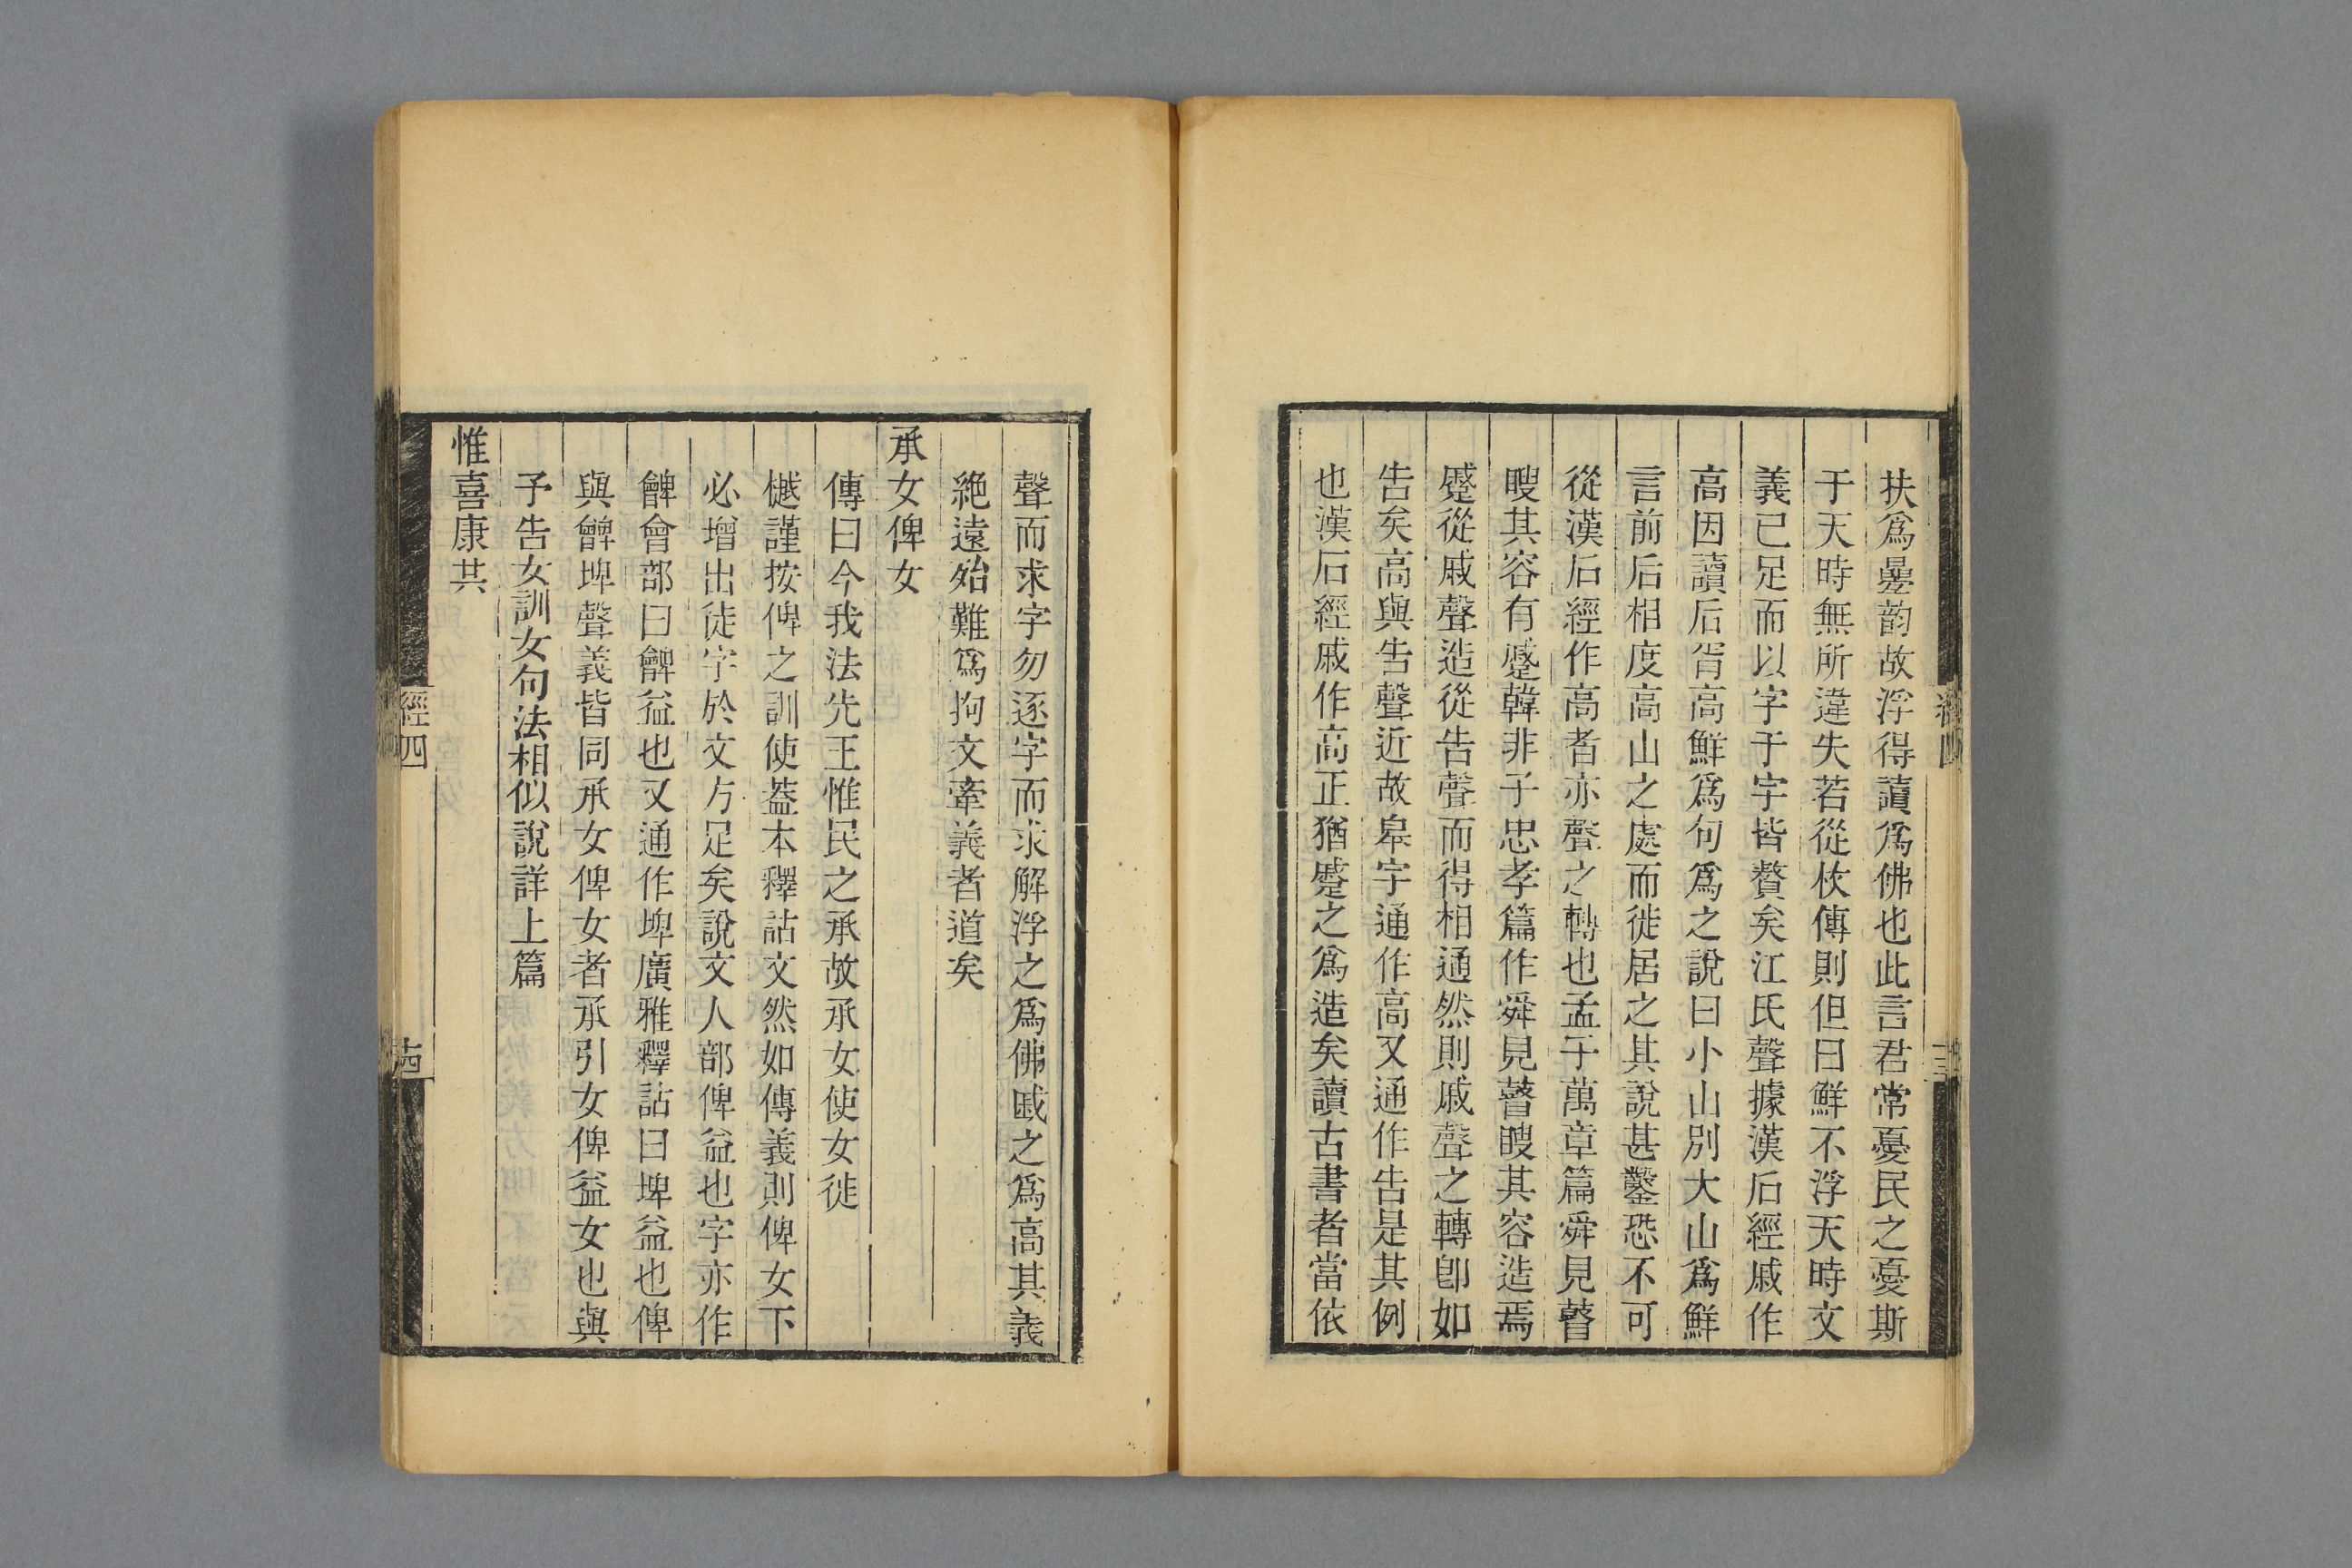 扶爲曓韵故浮得讀爲佛也此言君常憂民之憂斯
于天時無所違失若從枚傳則但曰鮮不浮天時文
義已足而以字于字皆贅矣江氏聲據漢石經戚作
高因讀后胥高鮮爲句爲之說曰小山別大山爲鮮
言前后相度高山之處而徙居之其說甚鑿恐不可
從漢石經作高者亦聲之轉也孟子萬章篇舜見瞽
瞍其容有蹙韓非子忠孝篇作舜見瞽瞍其容造焉
蹙從戚聲造從告聲而得相通然則戚聲之轉卽如
告矣高與告聲近故皋字通作高又通作告是其例
也漢石經戚作高正猶蹙之爲造矣讀古書者當依
經四
聲而求字勿逐字而求解浮之爲佛戚之爲高其義
絶遠殆難爲拘文牽義者道矣
承女俾女
傳曰今我法先王惟民之承故承女使女徙
樾謹按俾之訓使葢本釋詁文然如傳義則俾女下
必增出徙字於文方足矣說文人部俾益也字亦作
䚜會部曰䚜益也又通作埤廣雅釋詁曰埤益也俾
與䚜埤聲義皆同承女俾女者承引女俾益女也與
予告女訓女句法相似說詳上篇
惟喜康共
經四
十四